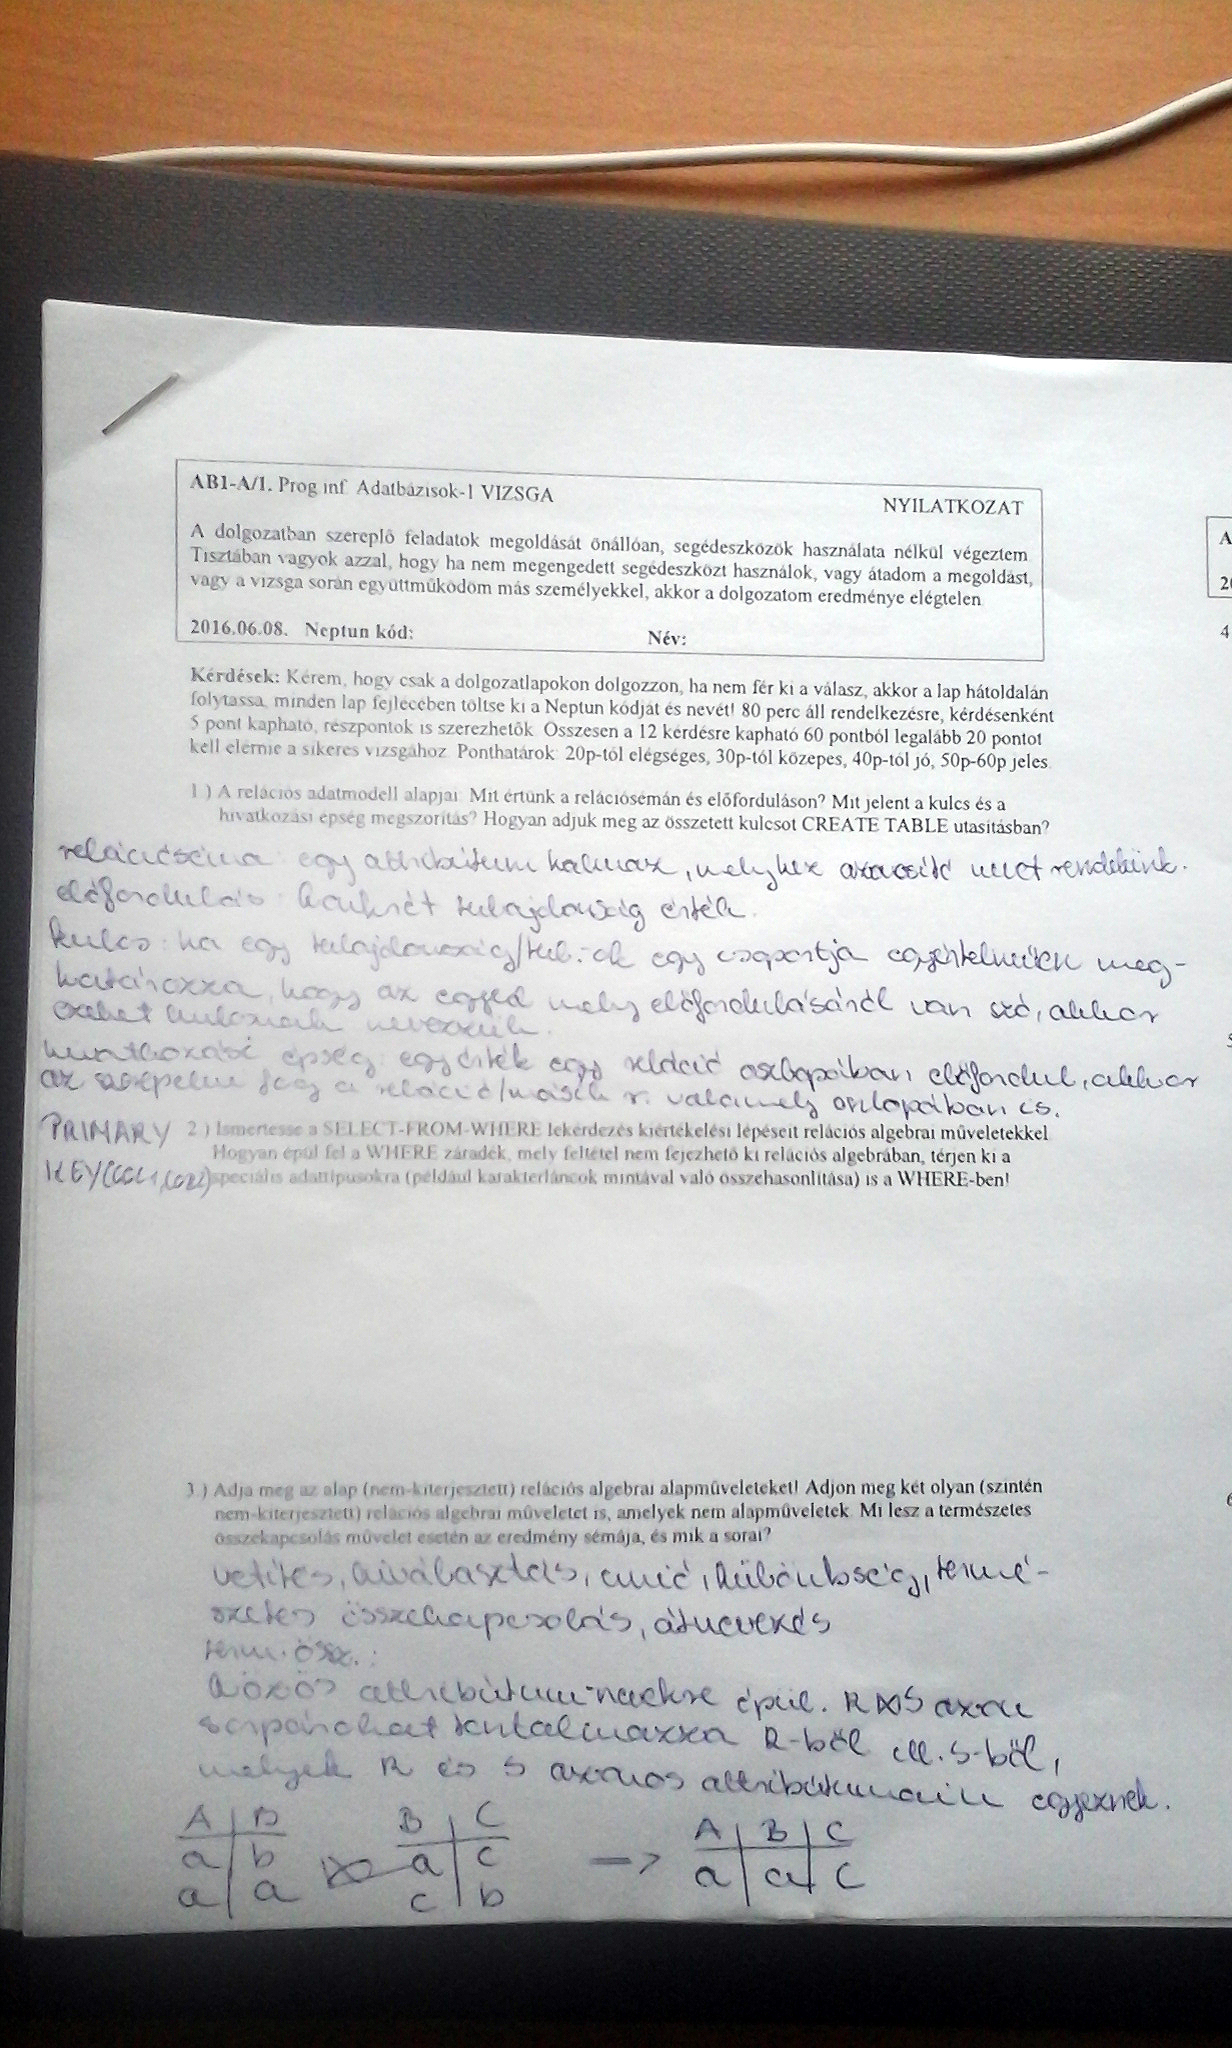 AB1-A/1. Prog inf. Adatbázisok-1 VIZSGA
NYILATKOZAT
A dolgozatban szereplő feladatok megoldását önállóan, segédeszközök használata nélkül végeztem.
Tisztában vagyok azzal, hogy ha nem megengedett segédeszközt használok, vagy átadom a megoldást,
vagy a vizsga során együttműködöm más személyekkel, akkor a dolgozatom eredménye elégtelen
2016.06.08. Neptun kód: Név:
Kérdések: Kérem, hogy csak a dolgozatlapokon dolgozzon, ha nem fér ki a válasz, akkor a lap hátoldalán
folytassa, minden lap fejlécében töltse ki a Neptun kódját és nevét! 80 perc áll rendelkezésre, kérdésenként
5 pont kapható, részpontok is szerezhetők. Összesen a 12 kérdésre kapható 60 pontból legalább 20 pontot
kell elérnie a sikeres vizsgához. Ponthatárok: 20p-tól elégséges, 30p-tól közepes, 40p-tól jó, 50p-60p jeles.
1.) A relációs adatmodell alapjai. Mit értünk a relációsémán és előforduláson? Mit jelent a kulcs és a
hivatkozási épség megszorítás? Hogyan adjuk meg az összetett kulcsot CREATE TABLE utasításban?
relációséma: egy attribútum halmaz, melyhez azonosító nevet rendelünk.
előfordulás: konkrét tulajdonság érték.
kulcs: ha egy tulajdonság/tul.-ok egy csoportja egyértelműen meg-
határozza, hogy az egyed mely előfordulásáról van szó, akkor
ezeket kulcsnak nevezzük.
hivatkozási épség: egy érték egy reláció oszlopában előfordul, akkor
az szerepelni fog a reláció/másik r. valamely oszlopában is.
PRIMARY
KEY(col1,col2)
2.) Ismertesse a SELECT-FROM-WHERE lekérdezés kiértékelési lépéseit relációs algebrai műveletekkel.
Hogyan épül fel a WHERE záradék, mely feltétel nem fejezhető ki relációs algebrában, térjen ki a
speciális adattípusokra (például karakterláncok mintával való összehasonlítása) is a WHERE-ben!
3.) Adja meg az alap (nem-kiterjesztett) relációs algebrai alapműveleteket! Adjon meg két olyan (szintén
nem-kiterjesztett) relációs algebrai műveletet is, amelyek nem alapműveletek. Mi lesz a természetes
összekapcsolás művelet esetén az eredmény sémája, és mik a sorai?
vetítés, kiválasztás, unió, különbség, termé-
szetes összekapcsolás, átnevezés
term. össz.:
közös attribútum-nevekre épül. R ⋈ S azon
sorpárokat tartalmazza R-ből ill. S-ből,
melyek R és S azonos attribútumain egyeznek.
A B B C A B C
a b ⋈ a c → a a c
a a c b